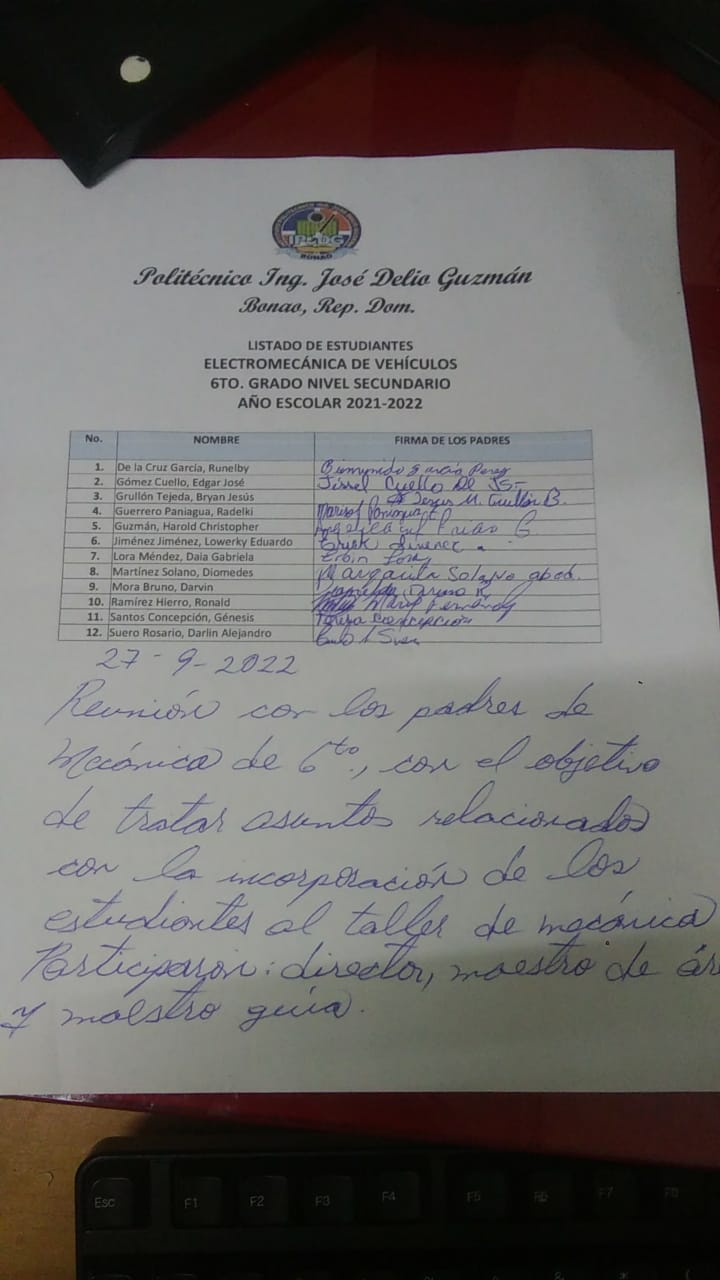 IPJDG
BONAO
Politécnico Ing. José Delio Guzmán
Bonao, Rep. Dom.
LISTADO DE ESTUDIANTES
ELECTROMECÁNICA DE VEHÍCULOS
6TO. GRADO NIVEL SECUNDARIO
AÑO ESCOLAR 2021-2022
No. NOMBRE FIRMA DE LOS PADRES
1. De la Cruz García, Runelby Bienvenido García Perez
2. Gómez Cuello, Edgar José Cuello De
3. Grullón Tejeda, Bryan Jesús Jesus M. Grullón B.
4. Guerrero Paniagua, Radelki Marisol Paniagua
5. Guzmán, Harold Christopher
6. Jiménez Jiménez, Lowerky Eduardo Jimenez
7. Lora Méndez, Daia Gabriela Lora
8. Martínez Solano, Diomedes Margarita Solano
9. Mora Bruno, Darvin
10. Ramírez Hierro, Ronald Maria
11. Santos Concepción, Génesis Teresa Concepción
12. Suero Rosario, Darlin Alejandro
27-9-2022
Reunión con los padres de
Mecánica de 6to., con el objetivo
de tratar asuntos relacionados
con la incorporación de los
estudiantes al taller de mecánica
Participaron: director, maestro de ár
y maestro guía.
Esc F1 F2 F3 F4 F5 F6 F7 F8